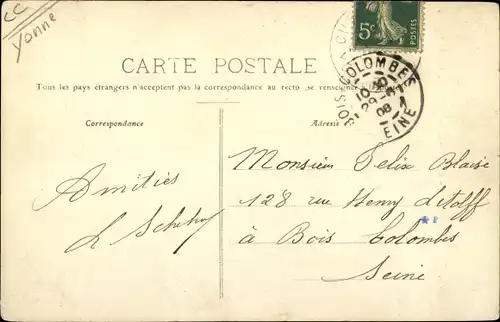 CC
Yonne
5c
POSTES
CARTE POSTALE
Tous les pays étrangers n'acceptent pas la correspondance au recto, se renseigner à la
Correspondance
Adresse
BOIS COLOMBES
SEINE
Amitiés
Monsieur Felix Blaise
128 rue Henry Litolff
à Bois Colombes
Seine